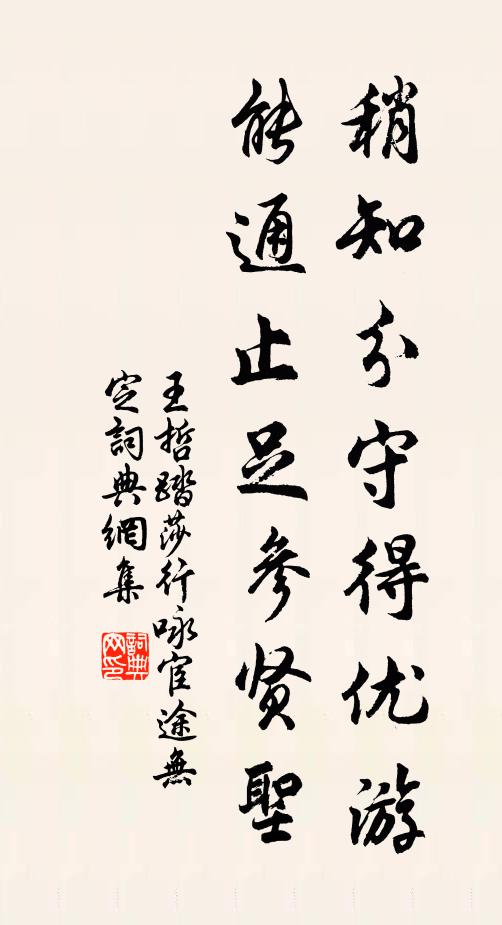 稍知分守得优游
能通止足参贤聖
王哲踏莎行咏宦途無
定詞典網集
詞典
网印